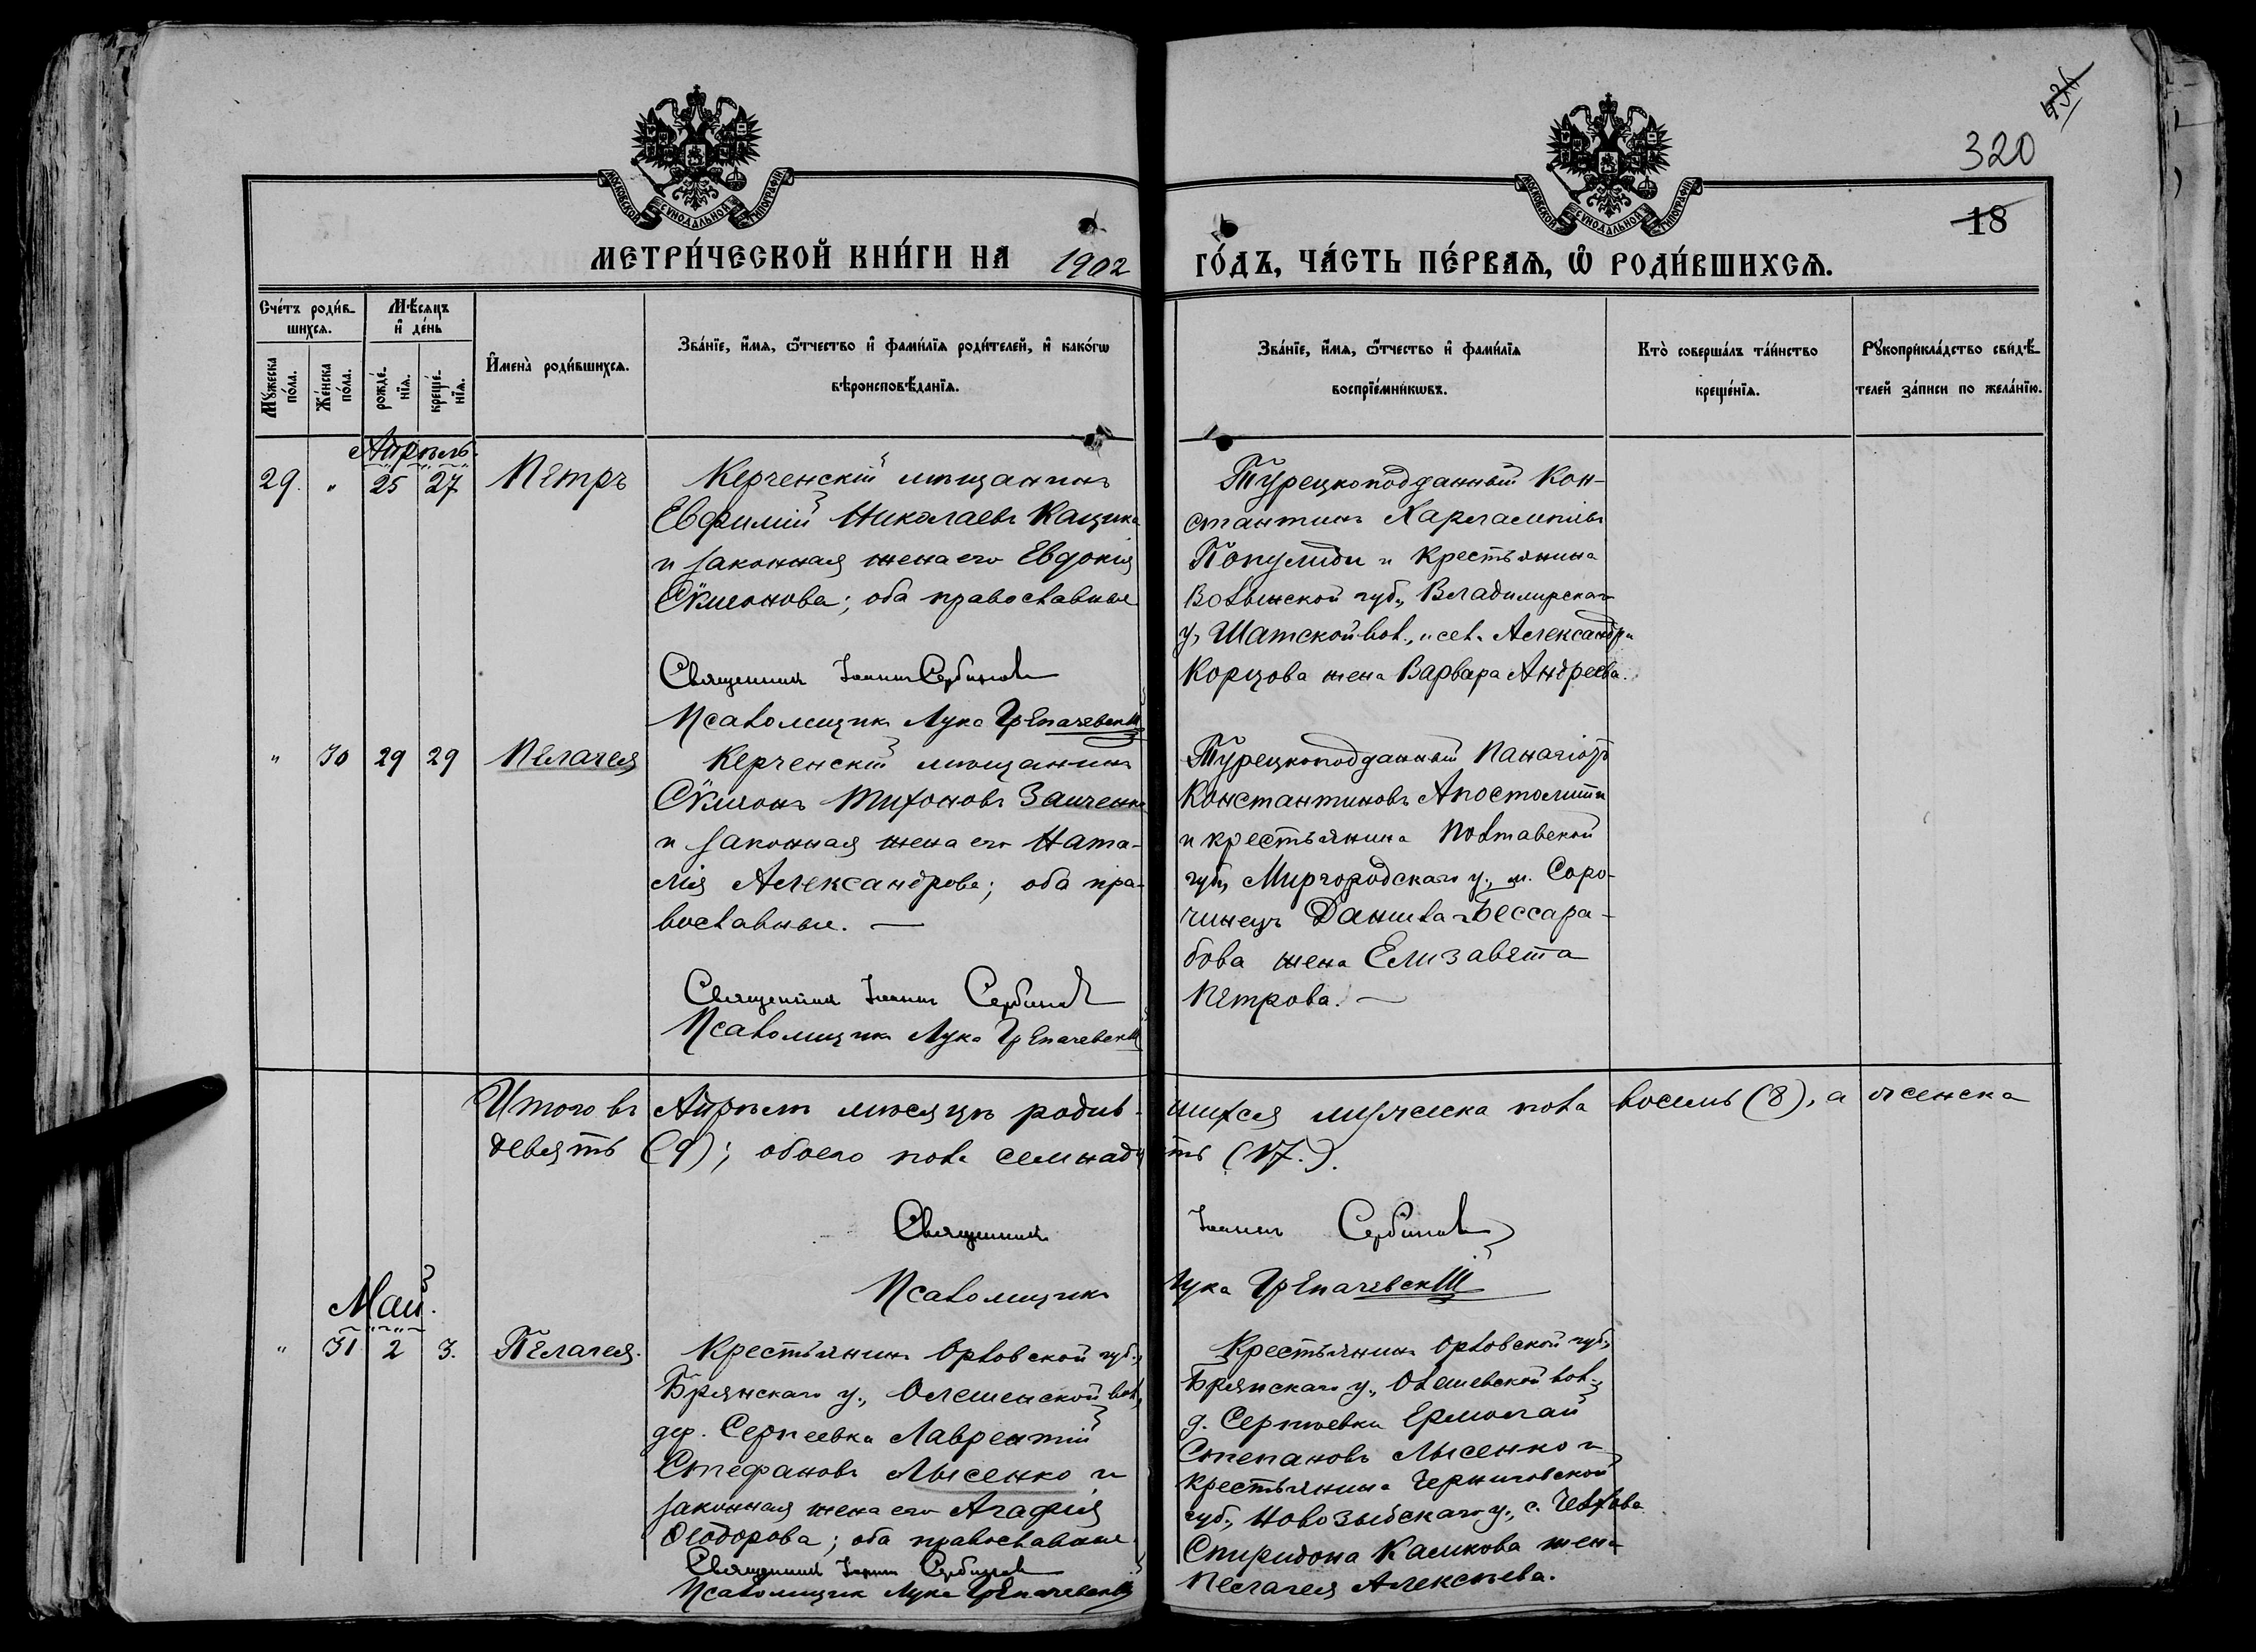 320
18
МОСКОВСКОЙ СѴНОДАЛЬНОЙ ТИПОГРАФІИ
МОСКОВСКОЙ СѴНОДАЛЬНОЙ ТИПОГРАФІИ
МЕТРИ́ЧЕСКОЙ КНИ́ГИ НА 1902 ГО́ДЪ, ЧА́СТЬ ПЕ́РВАѦ, Ѽ РОДИ́ВШИХСѦ.
Сче́тъ роди́в-
шихсѧ.
Мꙋ́жеска по́ла.
Же́нска по́ла.
Мѣ́сѧцъ
и҆ де́нь
рожде́-
нїѧ.
креще́-
нїѧ.
И҆мена̀ роди́вшихсѧ.
Зва́нїе, и҆́мѧ, ѻ҆́тчество и҆ фами́лїѧ роди́телей, и҆ како́гѡ
вѣроисповѣ́данїѧ.
Зва́нїе, и҆́мѧ, ѻ҆́тчество и҆ фами́лїѧ
воспрїе́мникѡвъ.
Кто̀ соверша́лъ та́инство
креще́нїѧ.
Рꙋкоприкла́дство свидѣ́-
телей за́писи по жела́нїю.
Апрѣль.
29. " 25 27 Петръ
Керченскій мѣщанинъ
Евфимій Николаевъ Кацика
и законная жена его Евдокія
Сѵмонова; оба православные
Священникъ Іоаннъ Сербиновъ
Псаломщикъ Лука Грепачевскій
Турецкоподданный Кон-
стантинъ Харлампіевъ
Популиди и крестьянина
Волынской губ., Владимирскаго
у, Шатской вол., и сел. Александра
Корцова жена Варвара Андреева.
" 30 29 29 Пелагея
Керченскій мѣщанинъ
Сѵмонъ Тихоновъ Заиченко
и законная жена его Ната-
лія Александрова; оба пра-
вославные. —
Священникъ Іоаннъ Сербиновъ
Псаломщикъ Лука Грепачевскій
Турецкоподданный Панагіотъ
Константиновъ Апостолиди
и крестьянина Полтавской
губ, Миргородскаго у., м. Соро-
чинецъ Данила Бессара-
бова жена Елизавета
Петрова. —
Итого въ Апрѣлѣ мѣсяцѣ родив-шихся мужеска пола восемь (8), а женска
девять (9); обоего пола семнадцть (17.).
Священникъ Іоаннъ Сербиновъ
Псаломщикъ Лука Грепачевскій
Май.
" 31 2 3. Пелагея.
Крестьянинъ Орловской губ.,
Брянскаго у., Олешенской вол,
дер. Сергеевка Лаврентій
Стефановъ Лысенко и
законная жена его Агафія
Ѳеодорова; оба православные.
Священникъ Іоаннъ Сербиновъ
Псаломщикъ Лука Грепачевскій
Крестьянинъ Орловской губ.,
Брянскаго у., Олешевской вол.,
д. Сергѣевки Ермолай
Степановъ Лысенко и
крестьянина Черниговской
губ., Новозыбскаго у., с. Чехова
Спиридона Камкова жена
Пелагея Алексѣева.